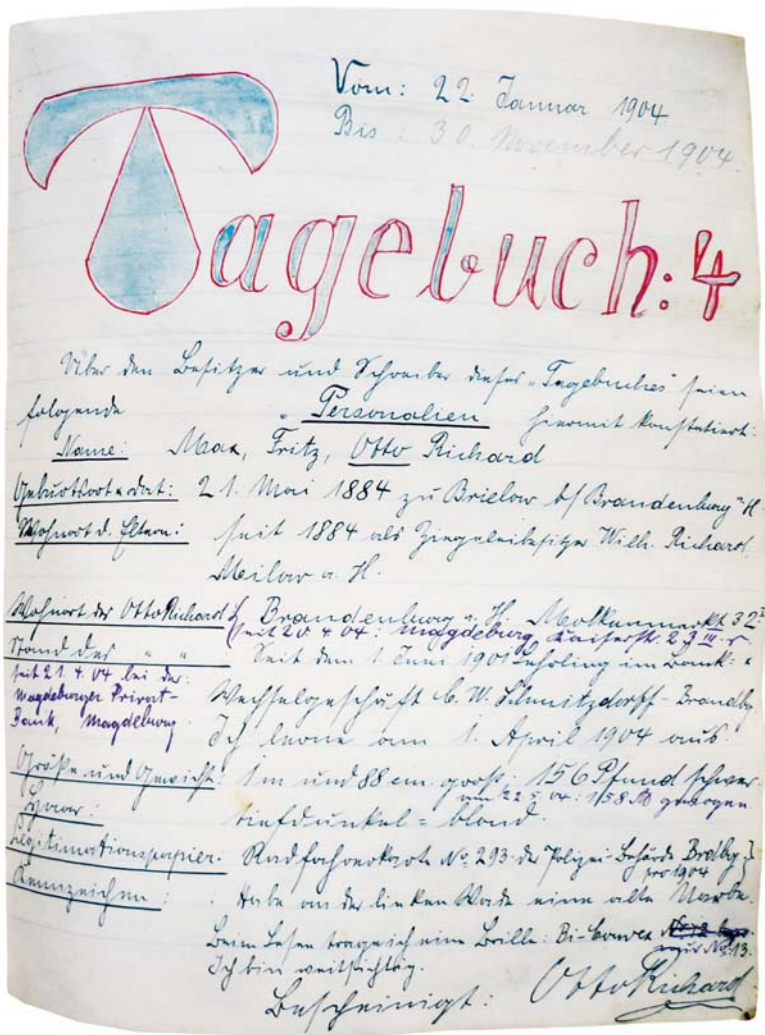 Vom: 22. Januar 1904
Bis: 30. November 1904.
Tagebuch: 4
Über den Besitzer und Schreiber dieses „Tagebuches" seien
folgende „Personalien hiermit konstatiert:
Name: Max, Fritz, Otto Richard
Geburtsort u. dat: 21. Mai 1884 zu Brielow b/ Brandenburg a. H.
Wohnort d. Eltern: seit 1884 als Ziegeleibesitzer Wilh. Richard.
Milow a. H.
Wohnort des Otto Richard: Brandenburg a. H. Molkenmarkt 32 I
(seit 20. 4. 04: Magdeburg, Kaiserstr. 23 III. r.
Stand des " " Seit dem 1. Juni 1901 Lehrling im Bank- &
seit 21. 4. 04 bei der
Magdeburger Privat-
Bank, Magdeburg.
Wechselgeschäft C. W. Schmitzdorff - Brandbg
Ich lerne am 1. April 1904 aus.
Größe und Gewicht: 1 m und 88 cm. groß; 156 Pfund schwer
am 22. 5. 04: 158 gewogen
Haar: tiefdunkel = blond.
Legitimationspapier: Radfahrerkarte No. 293 der Polizei-Behörde Brdbg
pro 1904
Kennzeichen: Habe an der linken Wade eine alte Narbe.
Beim Lesen trage ich eine Brille: Bi-Convex
No. 13.
Ich bin weitsichtig.
Bescheinigt: Otto Richard